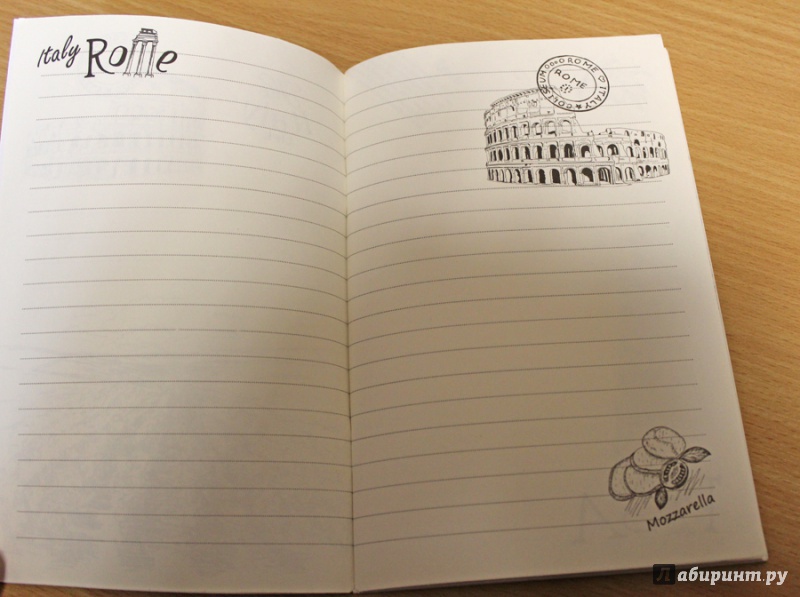 Italy Rome
COLISEUM ROME ITALY
ROME
Mozzarella
Лабиринт.ру